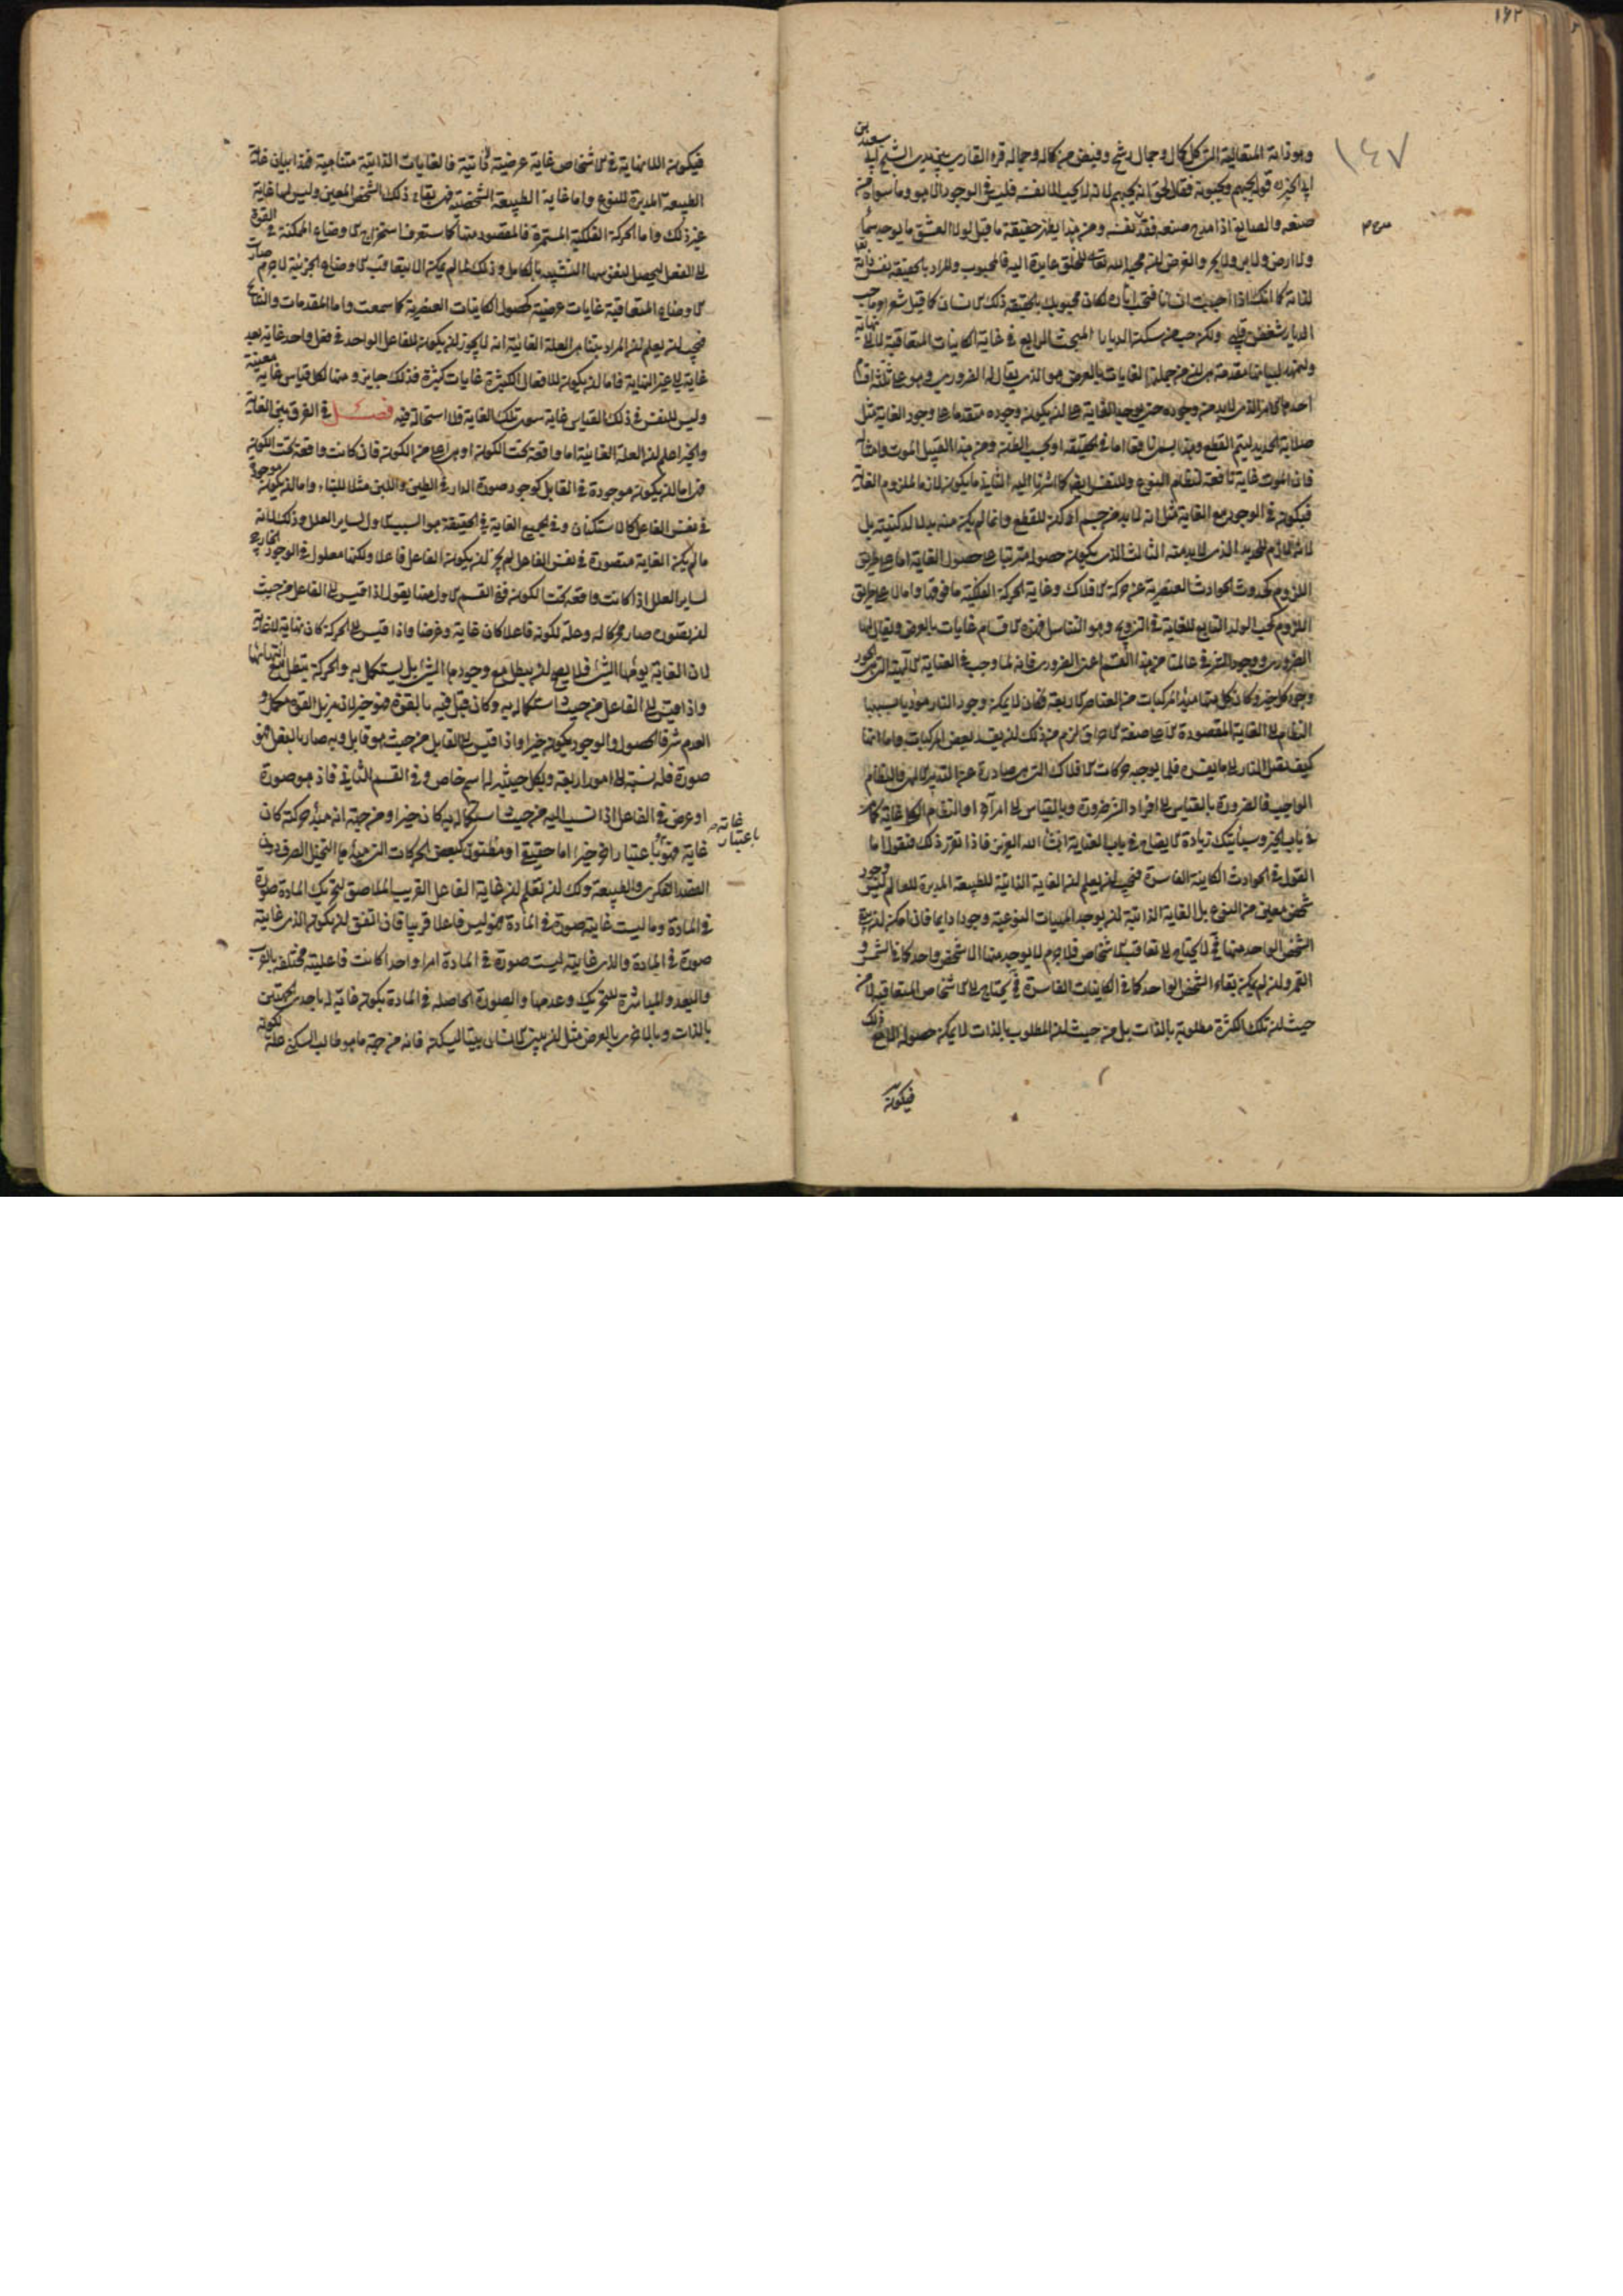 ١٤٧
وهو ذاته المتعالية التي كل كمال وجمال رشح وفيض من كماله وجماله قرء القاري بين يدي الشيخ ابي سعيد بن
ابي الخير ره قوله يحبهم ويحبونه فقال الحق انه يحبهم لانه لا يحب الا نفسه فليس في الوجود الا هو وما سواه من
صنعه والصانع اذا مدح صنعه فقد مدح نفسه ومن هذا يظهر حقيقة ما قيل لولا العشق ما يوجد سماء
ولا ارض ولا بر ولا بحر والغرض ان محبة الله تعالى للخلق عايدة اليه فالمحبوب والمراد بالحقيقة نفس ذاته
لذاته كما انك اذا احببت انسانا فتحب آثاره لكان محبوبك بالحقيقة ذلك الانسان كما قيل شعر وما حب
الديار شغفن قلبي ولكن حب من سكن الديارا المبحث الرابع في غاية الكاينات المتعاقبة لا الى نهاية
ولنمهد لبيانها مقدمة هي ان من جملة الغايات بالعرض هو الذي يقال له الضروري وهو على ثلثة اقسام
احدها الامر الذي لا بد من وجوده حتى يوجد الغاية على ان يكون وجوده متقدما على وجود الغاية مثل
صلابة الحديد ليتم القطع وهذا يسمى نافعا اما في الحقيقة او بحسب الظن ومن هذا القبيل الموت وامثاله
فان الموت غاية نافعة لنظام النوع وللنفس ايضا كما اشرنا اليه الثاني ما يكون لازما لملزوم الغاية
فيكون في الوجود مع الغاية مثل انه لا بد من جسم ادكن للقطع وانما لم يكن منه بد لا لدكنيته بل
لانه لازم للحديد الذي لا بد منه الثالث الذي يكون حصوله مترتبا على حصول الغاية اما على طريق
اللزوم كحدوث الحوادث العنصرية عن حركة الافلاك وغاية الحركة الفلكية ما فوقها واما لا على طريق
اللزوم كحب الولد التابع للغاية في التزويج وهو التناسل فهذه الاقسام غايات بالعرض ويقال لها
الضروري ووجود الشر في عالمنا من هذا القسم اعني الضروري فانه لما وجب في العناية الالهية التي هي الجود
وجود كل خير وكان كل منها مبدء المركبات من العناصر الاربعة فكان لا يمكن وجود النار مؤديا بسببها
النظام الى الغاية المقصودة الا على صفة الاحراق لزم من ذلك ان يفسد بعض المركبات واما انها
كيف تصل النار الى ما يفسده فلما يوجبه حركات الافلاك التي هي صادرة عن التدبير الالهي والنظام
الواجب فالضرورة بالقياس الى افراد الشر ضرورة وبالقياس الى امر آخر او النظام الكلي غاية كما مر
في باب الخير وسيأتيك زيادة الايضاح في باب العناية انشاء الله العزيز فاذا تقرر ذلك فنقول اما
القول في الحوادث الكاينة الفاسدة فيجب ان يعلم ان الغاية الذاتية للطبيعة المدبرة للعالم ليس وجود
شخص معين من النوع بل الغاية الذاتية ان يوجد المهيات النوعية وجودا دايما فان امكن ان يبقى
الشخص الواحد منها فح لا يحتاج الى تعاقب الاشخاص فلا جرم لا يوجد منها الا شخص واحد كما في الشمس و
القمر وان لم يمكن بقاء الشخص الواحد كما في الكاينات الفاسدة فح يحتاج الى الاشخاص المتعاقبة لا من
حيث ان تلك الكثرة مطلوبة بالذات بل من حيث ان المطلوب بالذات لا يمكن حصوله الا مع ذلك
فيكون
فيكون اللانهاية في الاشخاص غاية عرضية لا ذاتية فالغايات الذاتية متناهية فهذا بيان غاية
الطبيعة المدبرة للنوع واما غاية الطبيعة الشخصية فهي بقاء ذلك الشخص المعين وليس لها غاية
غير ذلك واما الحركة الفلكية المستمرة فالمقصود منها كما ستعرف استخراج الاوضاع الممكنة من القوة
الى الفعل ليحصل لنفوسها التشبه بالكامل وذلك لما لم يمكن الا بتعاقب الاوضاع الجزئية لا جرم صارت
الاوضاع المتعاقبة غايات عرضية كحصول الكاينات العنصرية كما سمعت واما المقدمات والنتايج
فيجب ان يعلم ان المراد بتناهي العلة الغائية انه لا يجوز ان يكون للفاعل الواحد في فعل واحد غاية بعد
غاية الى غير النهاية فاما ان يكون للافعال الكثيرة غايات كثيرة فذلك جايز وههنا لكل قياس غاية معينة
وليس للنفس في ذلك القياس غاية سوى تلك الغاية فلا استحالة فيه فصل في الفرق بين الغاية
والخير اعلم ان العلة الغائية اما واقعة تحت الكون او هي اعلى من الكون فان كانت واقعة تحت الكون
فهي اما ان يكون موجودة في القابل كوجود صورة الدار في الطين واللبن مثلا للبناء واما ان يكون موجودة
في نفس الفاعل كالاستكنان وفي الجميع الغاية في الحقيقة هو السبب الاول لساير العلل وذلك لانه
ما لم يكن الغاية متصورة في نفس الفاعل لم يجز ان يكون الفاعل فاعلا ولكنها معلول في الوجود الخارجي
لساير العلل اذا كانت واقعة تحت الكون ففي القسم الاول منها يقول اذا قيس الى الفاعل من حيث
ان تصوره صار محركا له وعلة لكونه فاعلا كان غاية وغرضا واذا قيس الى الحركة كان نهاية لا غاية
لان الغاية يؤمها الشيء فلا يصح ان يبطل مع وجودها الشيء بل يستكمل به والحركة تبطل مع انتهائها
واذا قيس الى الفاعل من حيث استكماله به وكان قبل فيه بالقوة فهو خير لانه مزيل القوة مكمل و
العدم شر فالحصول والوجود يكون خيرا واذا قيس الى القابل من حيث هو قابل وبه صار بالفعل فهو
صورة فله نسبة الى امور اربعة وبكل حيثية له اسم خاص وفي القسم الثاني فاذ هو صورة
او عرض في الفاعل اذا نسب اليه من حيث استكماله به كان خيرا ومن جهة انه مبدء حركة كان
غاية فهو باعتبار آخر خير اما حقيقي او مظنون كبعض الحركات التي مبدءها التخيل الصرف دون
غايته باعتبار
العقد الفكري والطبيعة ولك ان تعلم ان غاية الفاعل القريب الملاصق لتحريك المادة صورة
في المادة وما ليست غايته صورة في المادة فهو ليس فاعلا قريبا فان اتفق ان يكون الذي غايته
صورة في المادة والذي غايته ليست صورة في المادة امرا واحدا كانت فاعليته مختلفة بالقرب
والبعد والمباشرة للتحريك وعدمها والصورة الحاصلة في المادة يكون غاية له باحدى الجهتين
بالذات وبالاخرى بالعرض مثل ان يبني الانسان بيتا ليسكنه فانه من جهة ما هو طالب السكنى علة لكونه